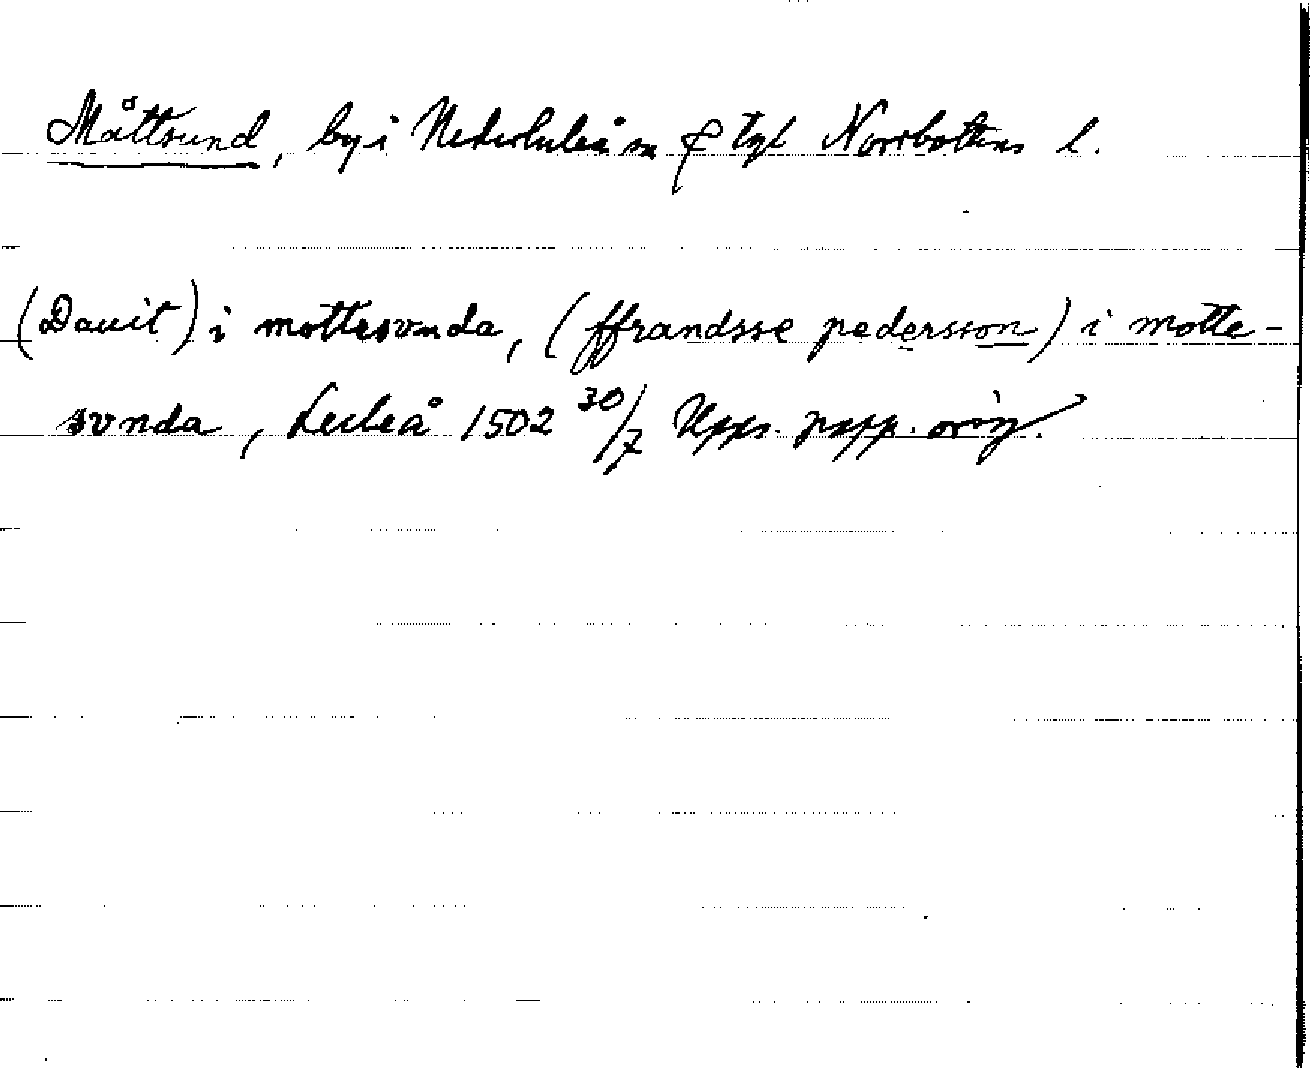 Måttsund, by i Nederluleå sn f tgl Norrbottens l.
(Dauit) i mottesvnda, (ffrandsse pedersson) i motte-
svnda, Luleå 1502 30/7 Upps. papp. orig.